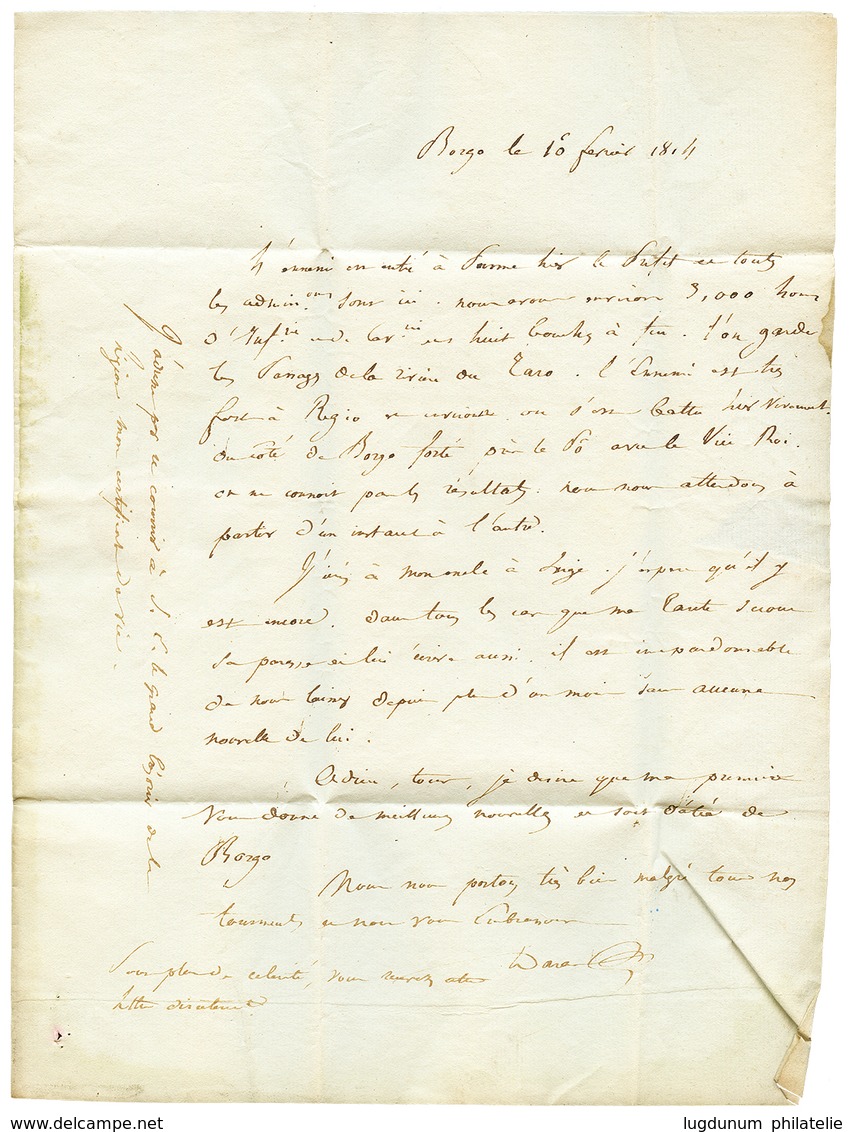 Borgo le 10 fevrier 1814
L'ennemi est entré à Parme hier le Préfet et toutes
les admin.ons sont ici. nous avons environ 3,000 hom
d'Inf.rie et de Cav.rie et huit bouches à feu. l'on garde
les Passages de la rivière du Taro. l'Ennemi est très
fort à Regio et on s'est battu hier
du côté de Borgo forté sur le Pô avec le Vice Roi.
on ne connoit pas les résultats. nous nous attendons à
partir d'un instant à l'autre.
J'écris à mon oncle à j'espère qu'il y
est encore. dans tous les cas que ma Tante secoue
sa paresse et lui écrive aussi. il est impardonnable
de nous laisser depuis plus d'un mois sans aucune
nouvelle de lui.
Adieu, tous, je désire que ma première
vous donne de meilleures nouvelles et soit datée de
Borgo
Nous nous portons très bien malgré tous nos
tourments et nous vous Embrassons
Pour plus de célérité, vous recevrez cette
lettre directement
J'adresse par ce courrier à S. E. le grand de la
légion mon certificat de vie.
lugdunum philatelie
www.delcampe.net